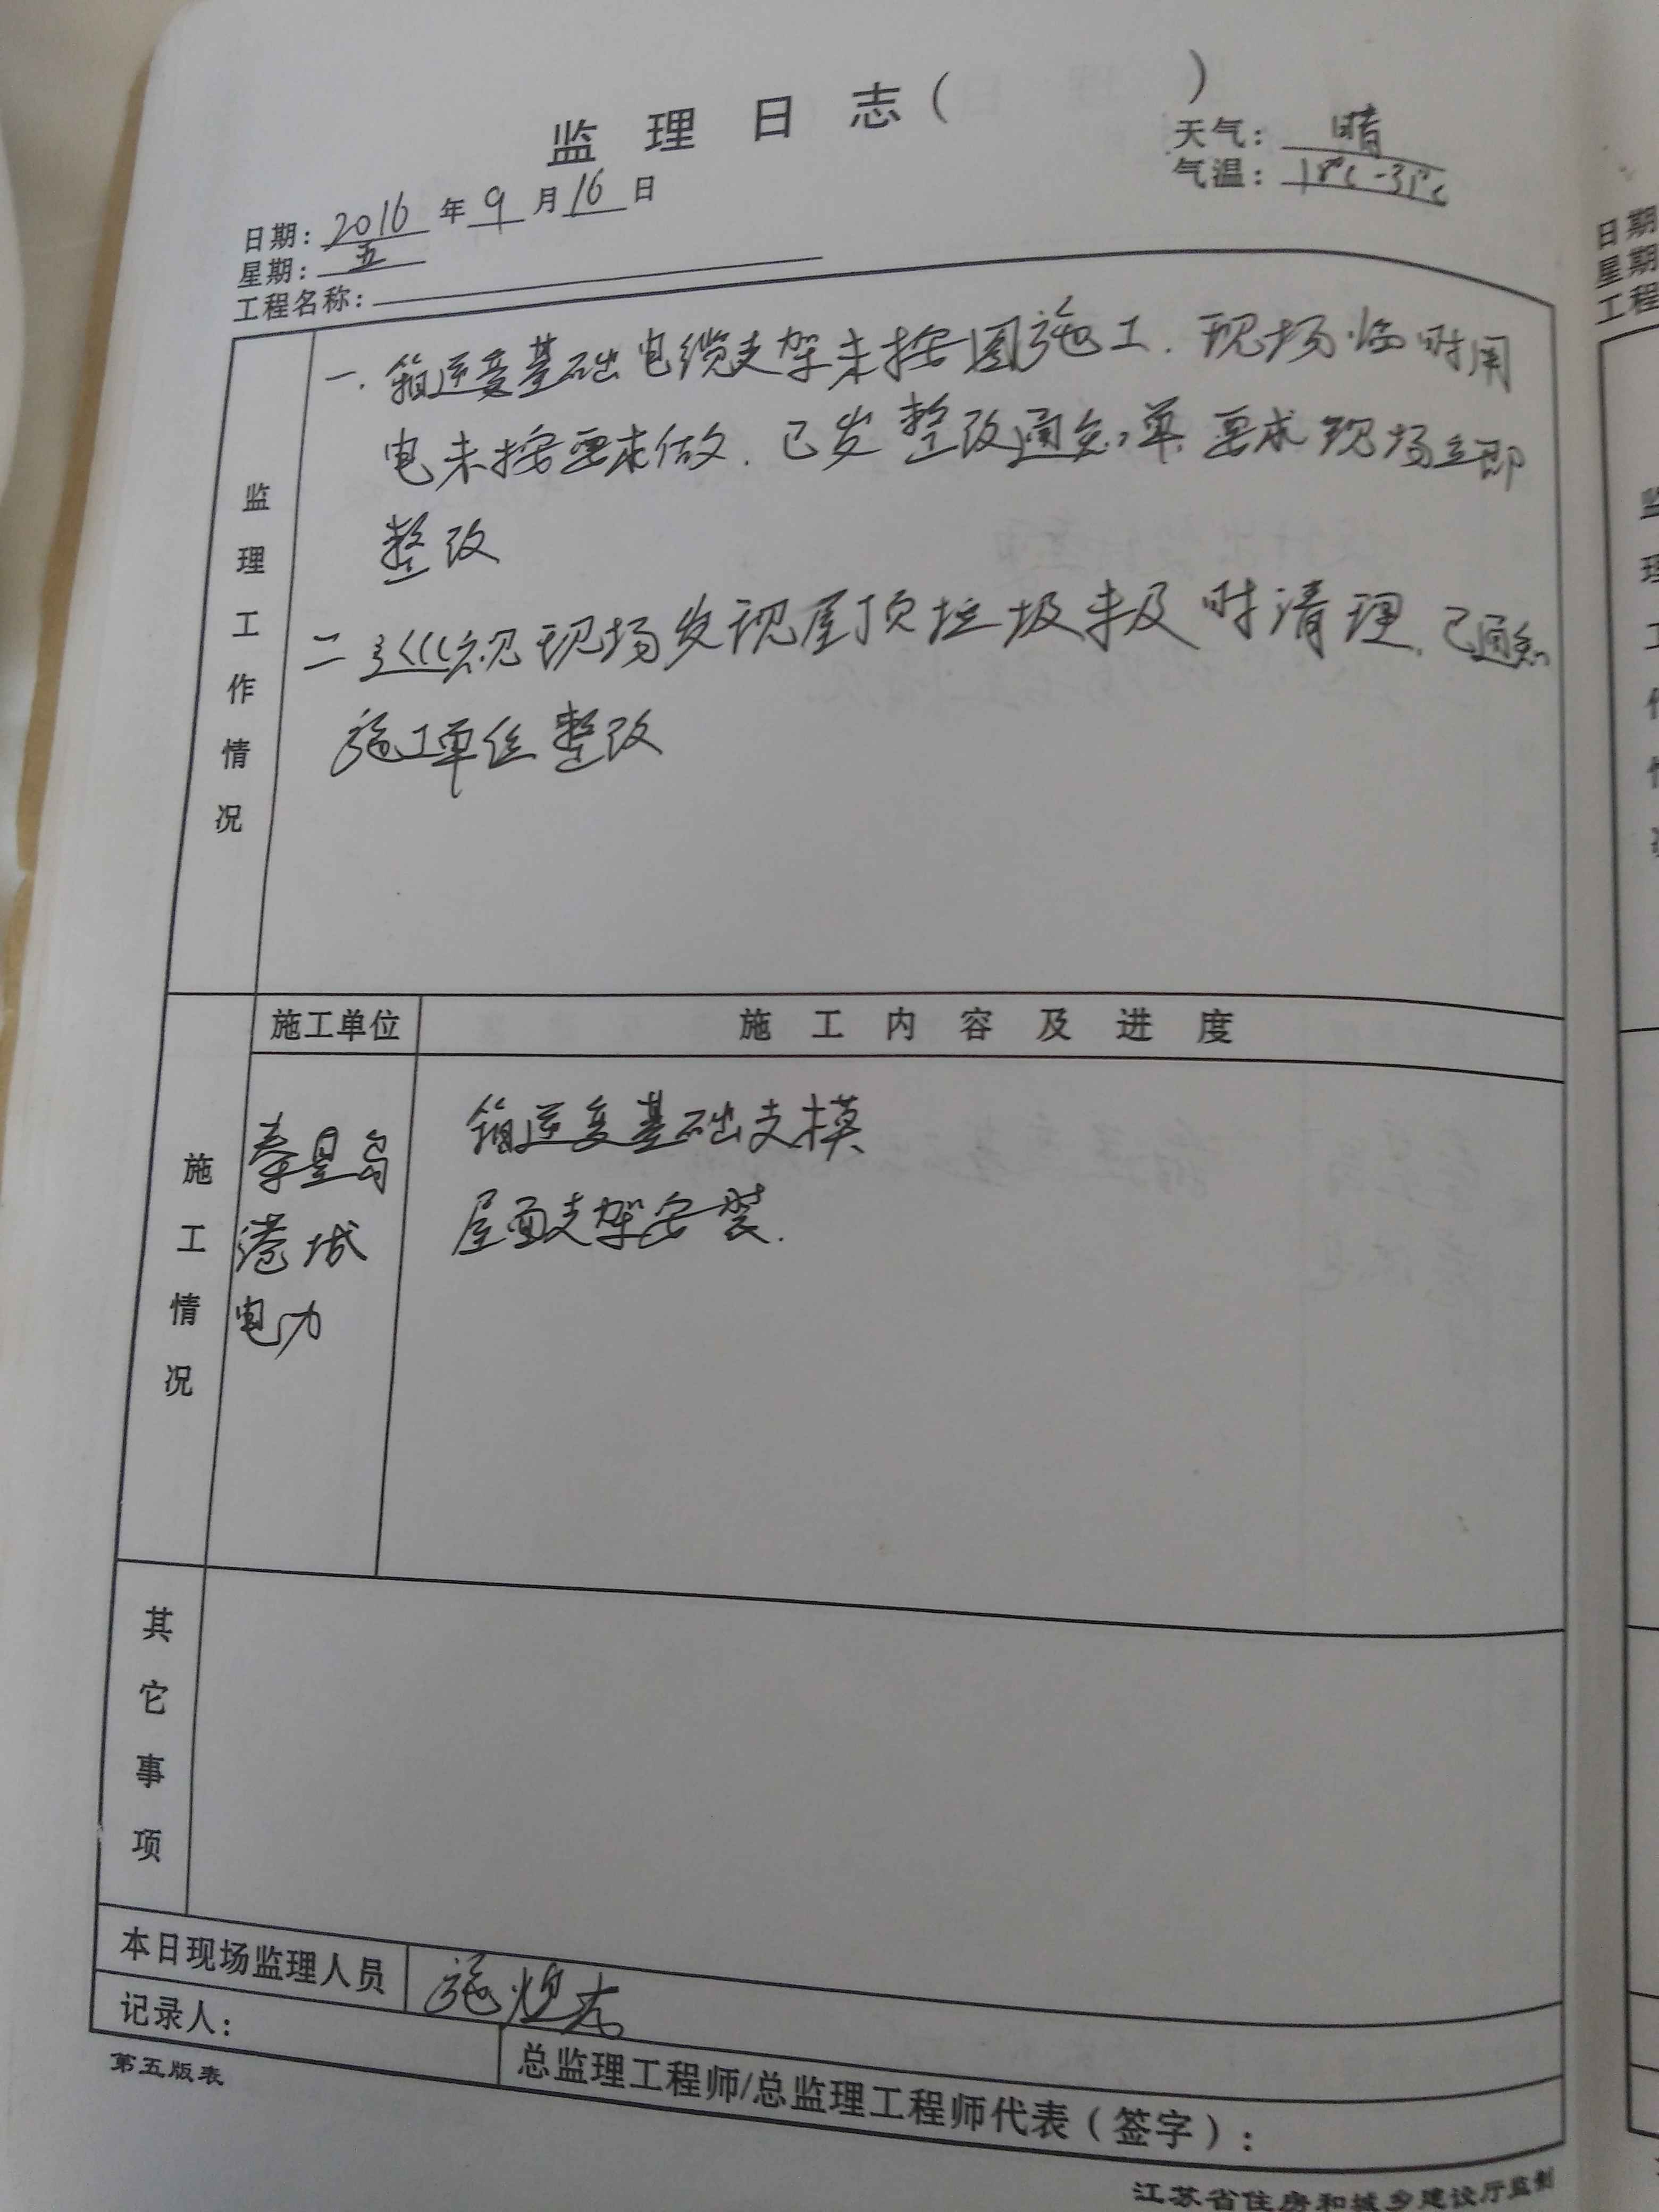 监理日志(　　　)
天气：晴
气温：18℃-31℃
日期：2016年9月16日
星期：五
工程名称：
监理工作情况
一.箱逆变基础电缆支架未按图施工.现场临时用
电未按要求做.已发整改通知单.要求现场立即
整改
二.巡视现场发现屋顶垃圾未及时清理.已通知
施工单位整改
施工单位 施工内容及进度
施工情况
秦皇岛
港城
电力
箱逆变基础支模
屋面支架安装.
其它事项
本日现场监理人员 施
记录人：
总监理工程师/总监理工程师代表（签字）：
第五版表
江苏省住房和城乡建设厅监制
日期
星期
工程